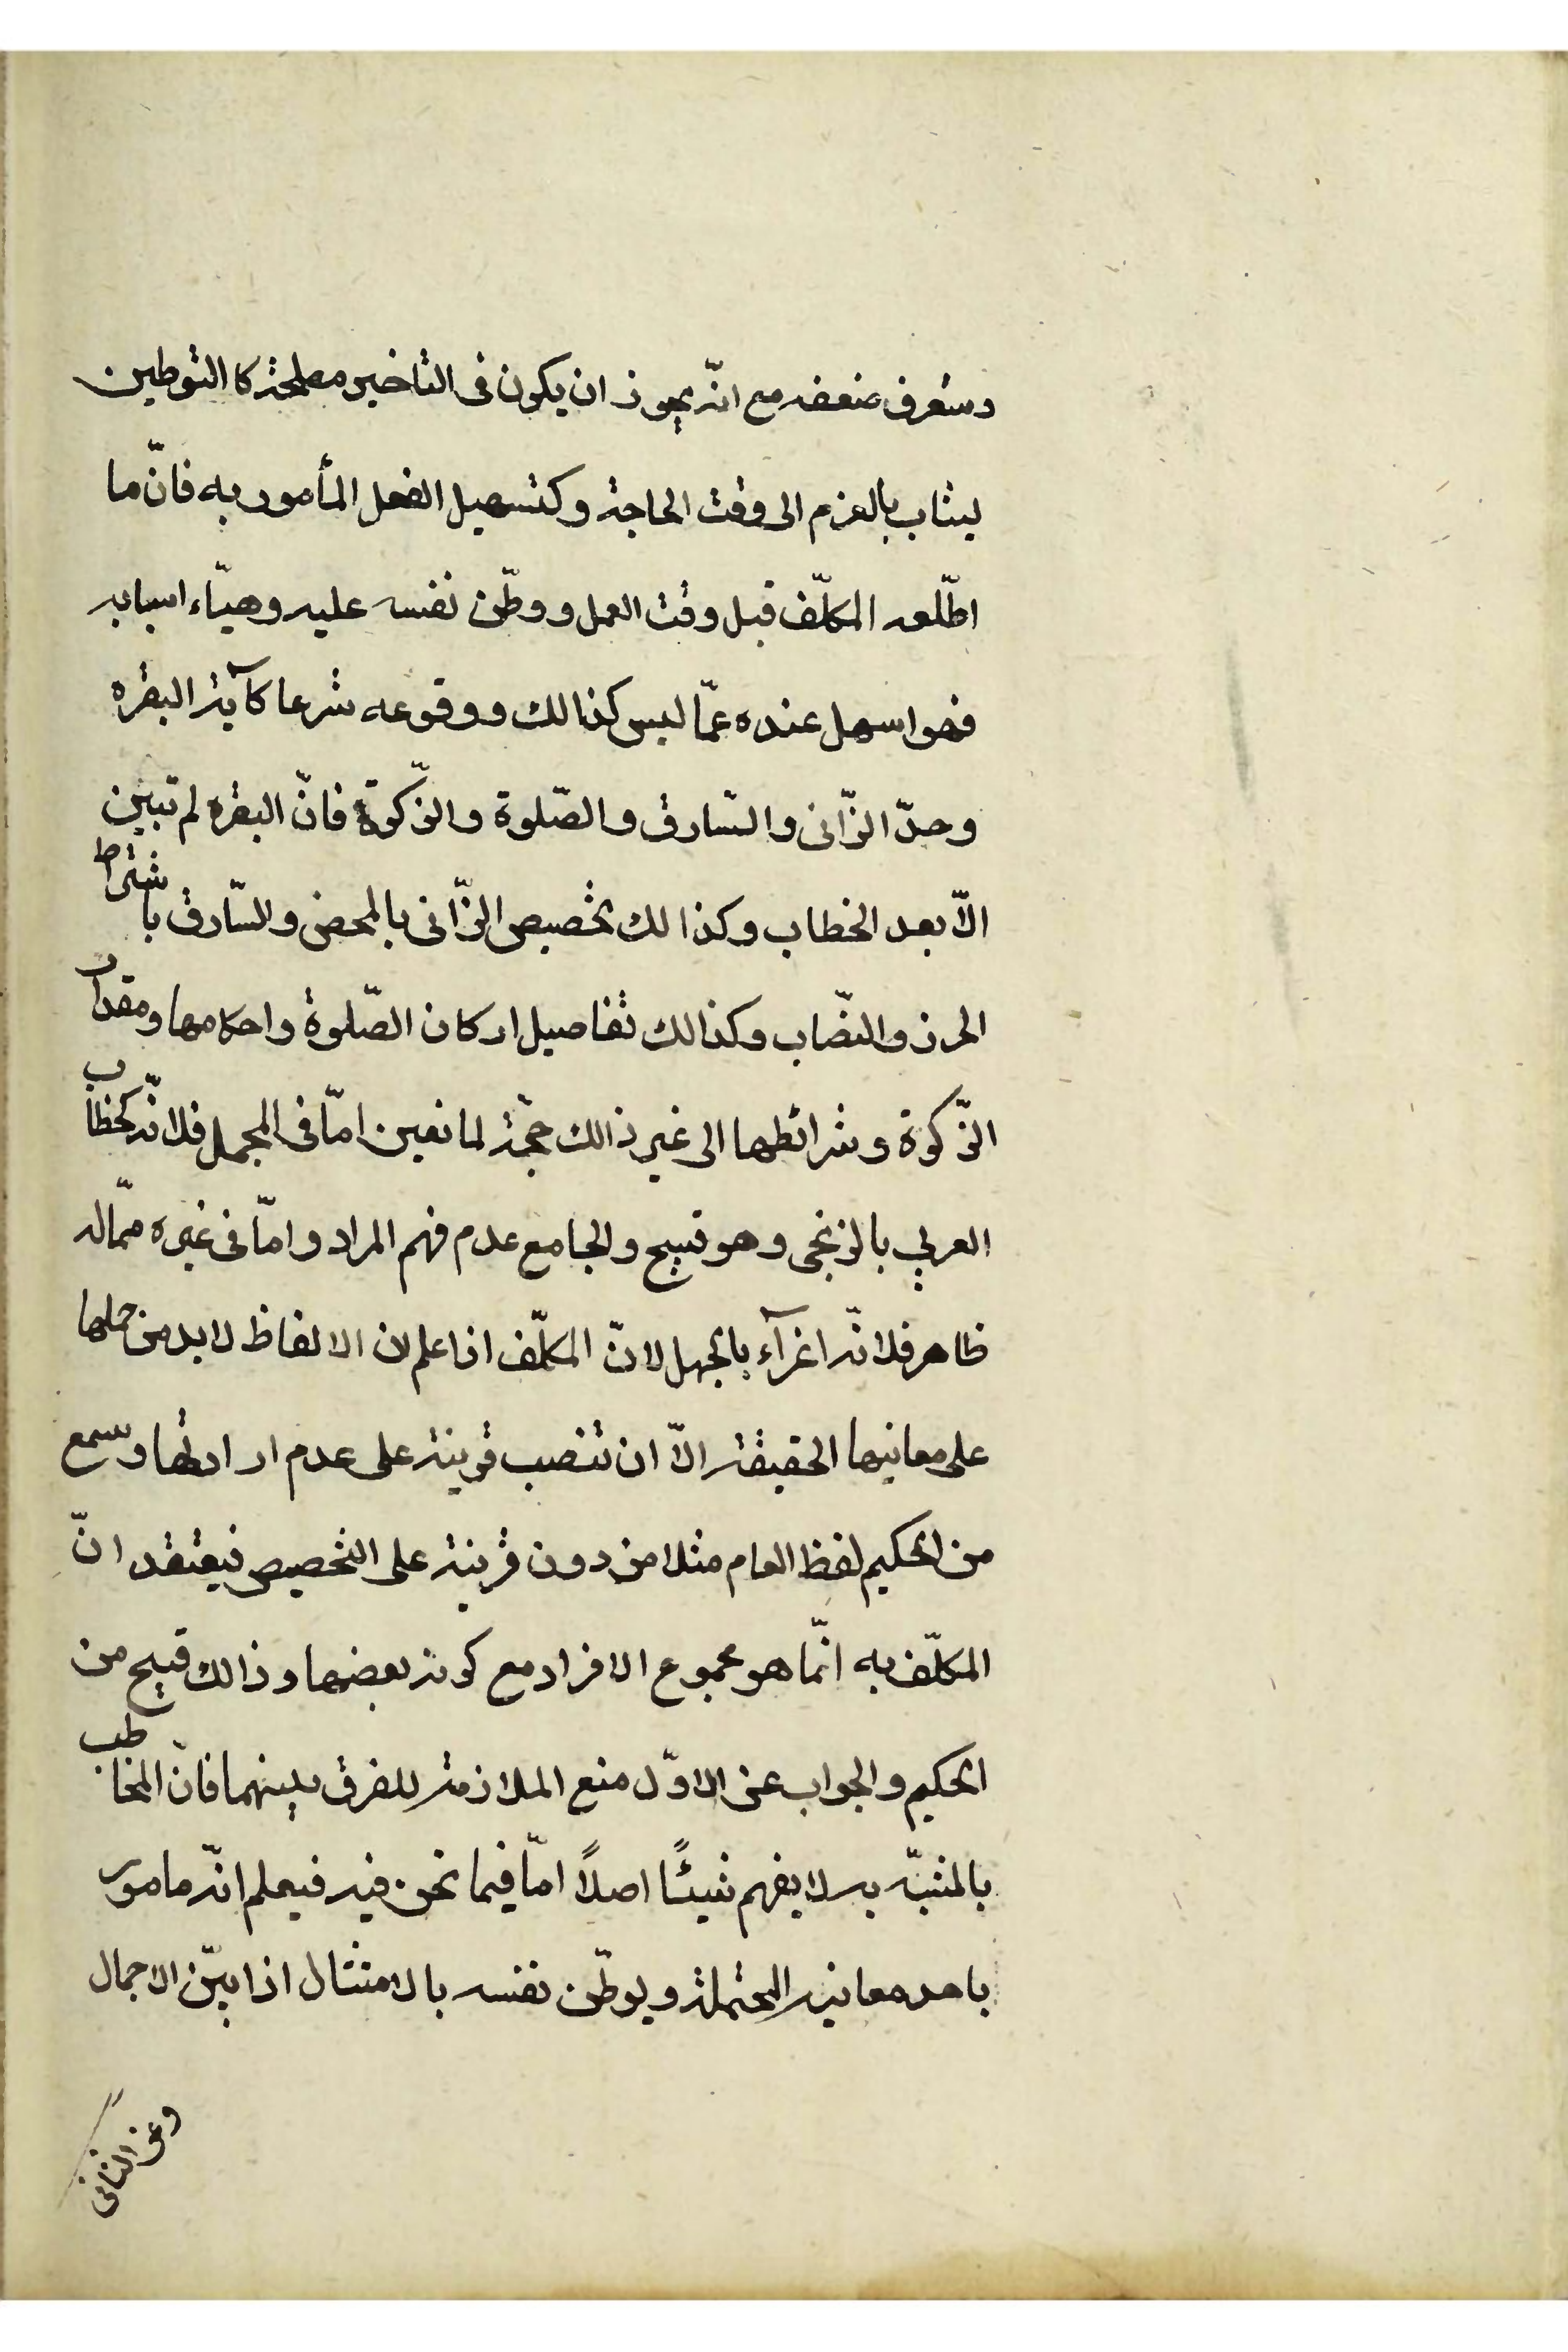 وستعرف ضعفه مع انّه يجوز ان يكون فى التاخير مصلحة كا التوطين
ليثاب بالعزم الى وقت الحاجة وكتسهيل الفعل المأمور به فانّ ما
اطّلعه المكلّف قبل وقت العمل ووطّن نفسه عليه وهيّاء اسبابه
فهو اسهل عنده عمّا ليس كذالك ووقوعه شرعا كآية البقره
وحدّ الزّانى والسّارق والصّلوة والزّكوة فانّ البقره لم تبين
الاّ بعد الخطاب وكذالك تخصيص الزّانى بالمحصن والسّارق باشتراط
الحرز والنصّاب وكذالك تفاصيل اركان الصّلوة واحكامها ومقدار
الزّكوة وشرائطها الى غير ذالك حجّة لمانعين امّا فى المجمل فلانّه كخطاب
العربي بالزنجى وهو قبيح والجامع عدم فهم المراد وامّا فى غيره ممّا له
ظاهر فلانّه اغرآء بالجهل لانّ المكلّف اذا علم ان الالفاظ لابد من حملها
على معانيها الحقيقة الاّ ان تنصب قرينة على عدم ارادتها وسمع
من الحكيم لفظ العام مثلا من دون قرينة على التخصيص فيعتقد انّ
المكلّف به انّما هو مجموع الافراد مع كونه بعضها وذالك قبيح من
الحكيم والجواب عن الاوّل منع الملازمة للفرق بينهما فانّ المخاطب
بالمشبّه به لا يفهم شيئًا اصلاً امّا فيما نحن فيه فيعلم انّه مامور
باحد معانيه المحتملة ويوطّن نفسه بالامتثال اذا بيّن الاجمال
وعن الثانى